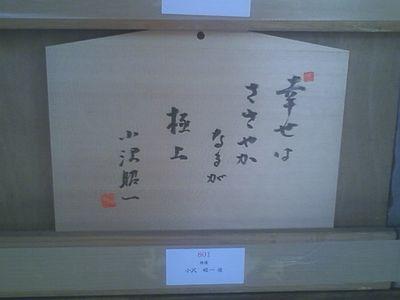 幸せは
ささやか
なるが
極上
小沢昭一
801
小沢 昭一 様